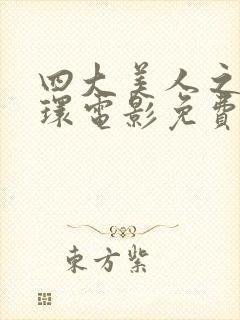 四大美人之
環電影免費
東方紫